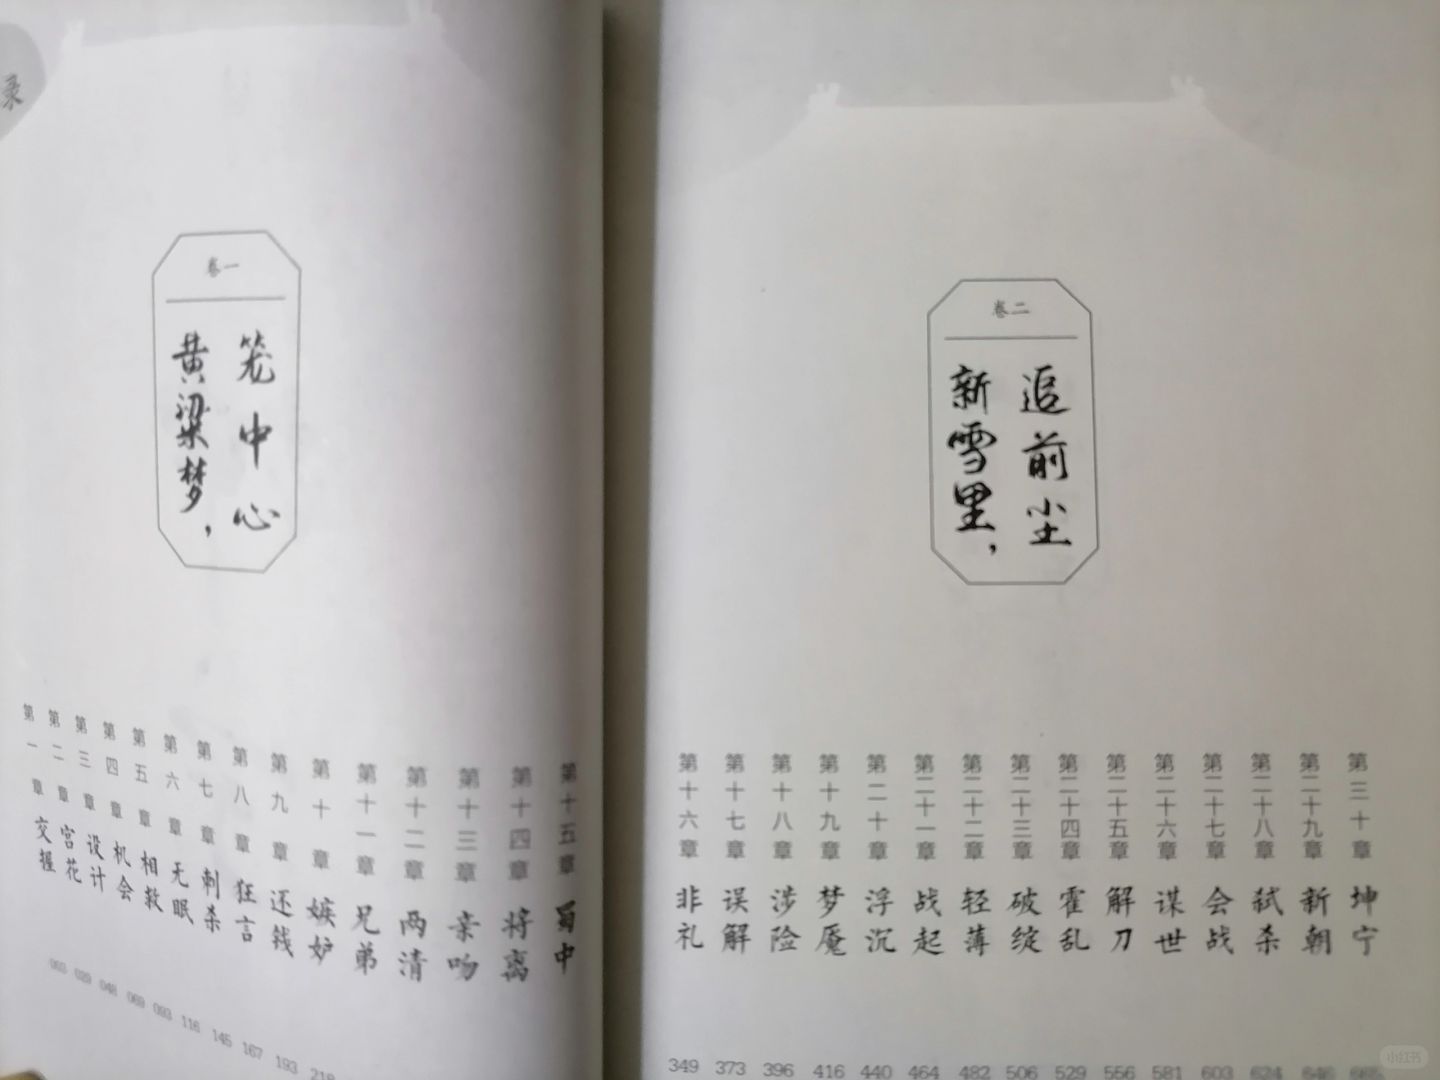 录
卷一
黄粱梦，
笼中心
第一章 交握 003
第二章 宫花 029
第三章 设计 048
第四章 机会 069
第五章 相救 093
第六章 无眠 116
第七章 刺杀 145
第八章 狂言 167
第九章 还钱 193
第十章 嫉妒 218
第十一章 兄弟
第十二章 两清
第十三章 亲吻
第十四章 将离
第十五章 蜀中
卷二
新雪里，
追前尘
第十六章 非礼 349
第十七章 误解 373
第十八章 涉险 396
第十九章 梦魇 416
第二十章 浮沉 440
第二十一章 战起 464
第二十二章 轻薄 482
第二十三章 破绽 506
第二十四章 霍乱 529
第二十五章 解刀 556
第二十六章 谋世 581
第二十七章 会战 603
第二十八章 弑杀 624
第二十九章 新朝 646
第三十章 坤宁 665
小红书